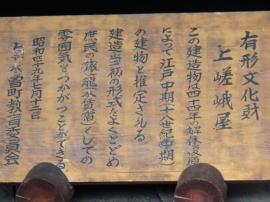 有形文化財
上嵯峨屋
この建造物は四十四年の解体復原
によって江戸中期(十八世紀中期)
の建物と推定される
建造当初の形式をよくとどめ
庶民の旅籠(木賃宿)としての
雰囲気をうかがうことができる
昭和四十九年七月十二日
町教育委員会